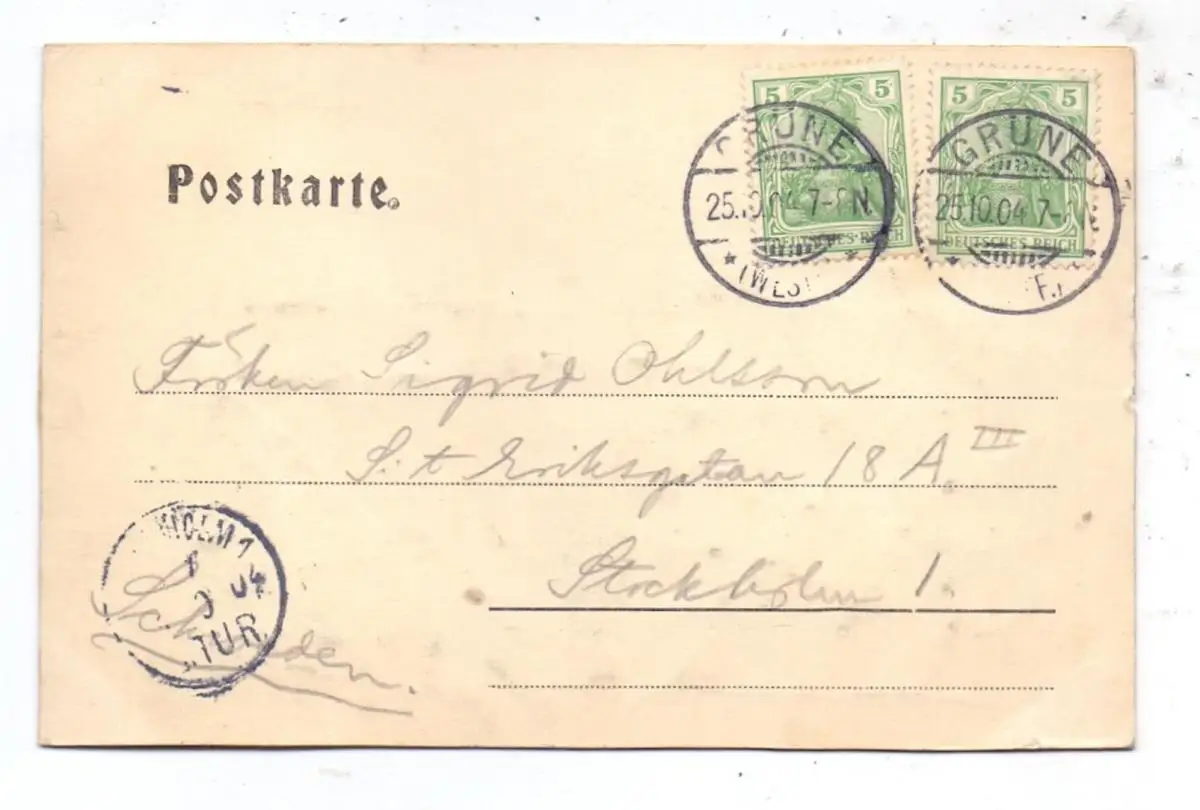 5 5
5 5
GRÜNE
25.10.04 7-8N.
* (WEST *
DEUTSCHES REICH
GRÜNE
25.10.04 7-
* F.)
DEUTSCHES REICH
Postkarte.
Fröken Sigrid Ohlsson
S:t Eriksgatan 18 A. III
Stockholm 1.
HOLM 1
04
TUR
Schweden.